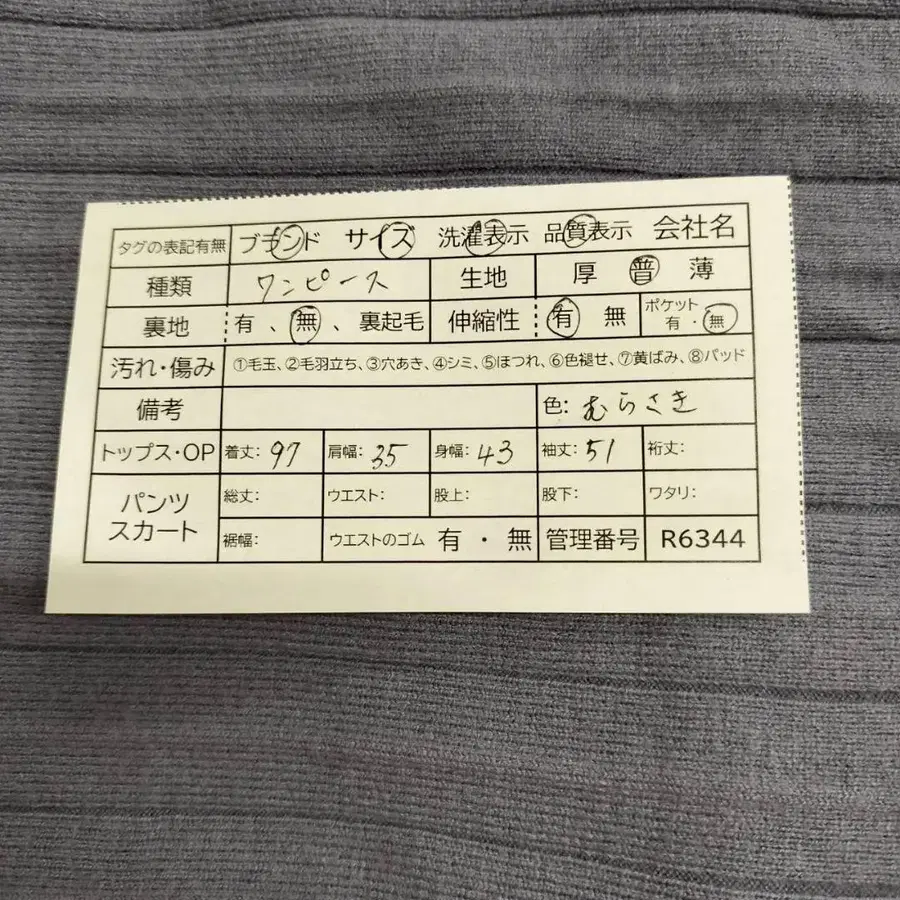 タグの表記有無 ブランド サイズ 洗濯表示 品質表示 会社名
種類 ワンピース 生地 厚 普 薄
裏地 有、無、裏起毛 伸縮性 有 無 ポケット 有・無
汚れ・傷み ①毛玉、②毛羽立ち、③穴あき、④シミ、⑤ほつれ、⑥色褪せ、⑦黄ばみ、⑧パッド
備考 色: むらさき
トップス・OP 着丈: 97 肩幅: 35 身幅: 43 袖丈: 51 裄丈:
パンツ スカート 総丈: ウエスト: 股上: 股下: ワタリ:
裾幅: ウエストのゴム 有・無 管理番号 R6344